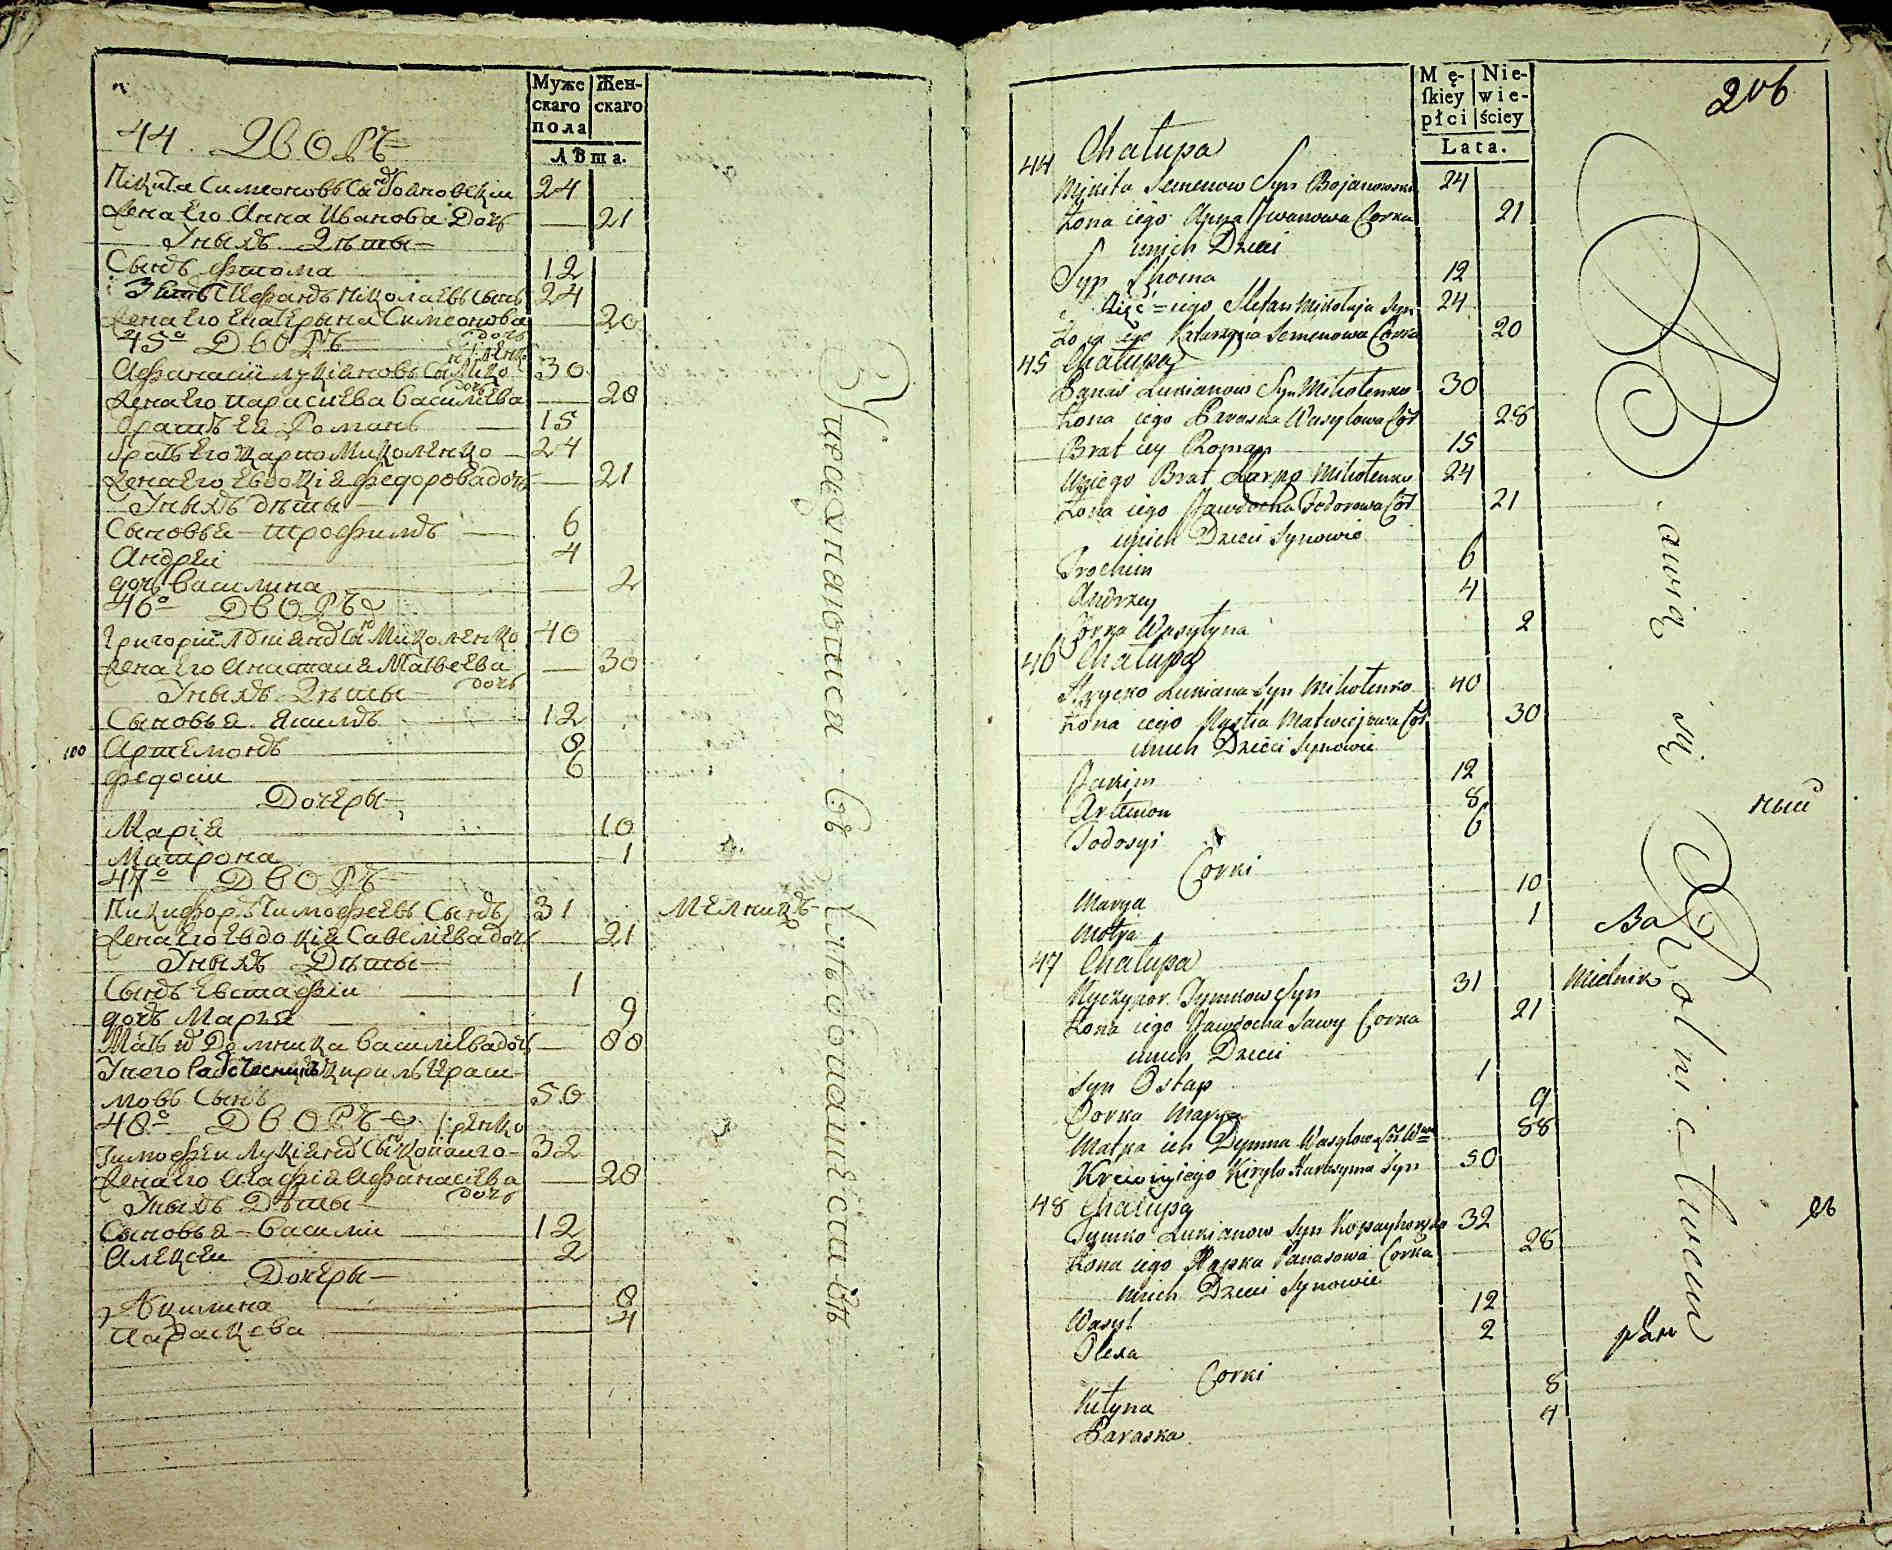 Муже Жен-
скаго скаго
пола
Лѣта.
44. Дворъ
Никита Симеоновъ Сынъ Бояновскіи 24
Жена Его Анна Иванова Дочь — 21
У ныхъ Дѣты
Сынъ Фтома 12
Зять Стефанъ Николаевъ Сынъ 24
Жена Его Екатерына Симеонова 20
дочь
45о Дворъ
Афанасіи Лукіяновъ Сынъ Мико- 30
ленко
Жена Его Параскева Василева — 28
дочь
братъ Ея Романъ — 15
братъ Его Карпо Миколенко — 24
Жена Его Евдокія Федорова дочь — 21
У ныхъ дѣты
Сыновья — Трофимъ 6
Андреи 4
дочь Василина 2
46о Дворъ
Григоріи Лукіянъ Сынъ Миколенко 40
Жена Его Анастасия Матвеева — 30
дочь
У ныхъ Дѣты
Сыновья Якимъ 12
100 Артемонъ 8
Федосии 6
Дочеры
Марія 10
Матрона 1
47о Дворъ
Никифоръ Тимофеевъ Сынъ 31 Мелникъ
Жена Его Евдокія Савеліева дочь 21
У ныхъ Дѣты
Сынъ Евстафіи 1
дочь Марья 9
Мать их Домника Василіева дочь — 88
У него Кирилъ Ераси-
мовъ Сынъ 50
48о Дворъ
Тимофеи Лукіянъ Сынъ Копаиго- 32
ренко
Жена Его Агафія Афанасіева — 28
дочь
У ныхъ Дѣты
Сыновья — Василіи 12
Алексеи 2
Дочеры
Акилина 8
Параскева 4
Упражняются въ Хлѣбопашествѣ
Mę- Nie-
ſkiey wie-
płci ściey
Lata.
206
44 Chałupa
Mikita Semenow Syn Bojanowski 24
Żona iego Anna Iwanowa Corka 21
u nich Dzieci
Syn Choma 12
Zięć iego Stefan Mikołaja Syn 24
Żona iego Katarzyna Semenowa Corka 20
45 Chałupa
Panas Lukianow Syn Mikołenko 30
Żona iego Paraska Wasylowa Cor 28
Brat iey Roman 15
U niego Brat Karpo Mikołenko 24
Żona iego Jawdocha Fedorowa Cor 21
u nich Dzieci Synowie
Trochim 6
Andrzey 4
Corka Wasylyna 2
46 Chałupa
Hrycko Lukiana Syn Mikołenko 40
Żona iego Nastia Matwiejowa Cor 30
u nich Dzieci Synowie
Jakim 12
Artemon 8
Todosyi 6
Corki
Marya 10
Motra 1
47 Chałupa
Nyczypor Tymkow Syn 31 Mielnik
Żona iego Jawdocha Sawy Corka 21
u nich Dzieci
Syn Ostap 1
Corka Marya 9
Matka ich Dymna Wasylowa 88
Kiryło Harasyma Syn 50
48 Chałupa
Tymko Lukianow Syn 32
Żona iego Hapka Panasowa Corka 28
u nich Dzieci Synowie
Wasyl 12
Olexa 2
Corki
Kiłyna 8
Paraska 4
ный
За